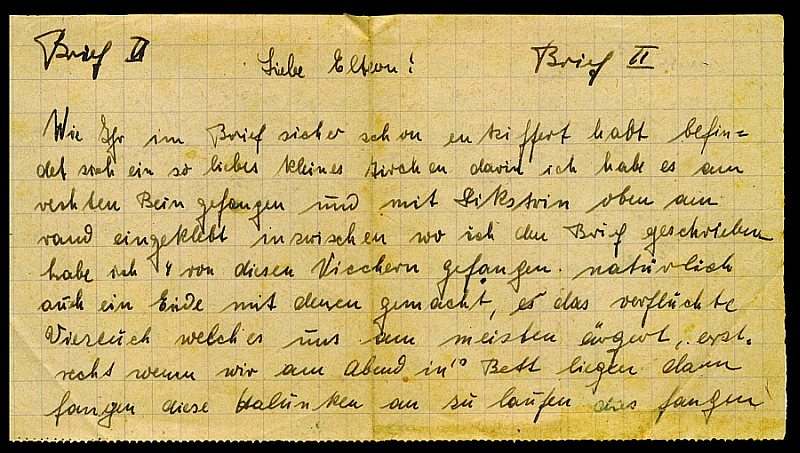 Brief II Liebe Eltern! Brief II
Wie Ihr im Brief sicher schon entziffert habt befin=
det sich ein so liebes kleines tirchen darin ich habe es am
rechten Bein gefangen und mit oben am
rand eingeklebt inzwischen wo ich den Brief geschrieben
habe ich 4 von diesen Viechern gefangen. natürlich
auch ein Ende mit denen gemacht, es das verfluchte
Viezeuch welches uns am meisten ärgert, erst=
recht wenn wir am Abend in's Bett liegen dann
fangen diese Halunken an zu laufen das fangen